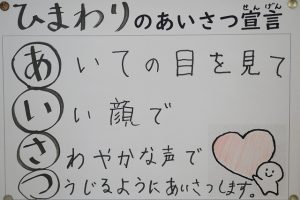 ひまわりのあいさつ宣言
せんげん
あいての目を見て
いい顔で
さわやかな声で
つうじるようにあいさつします。